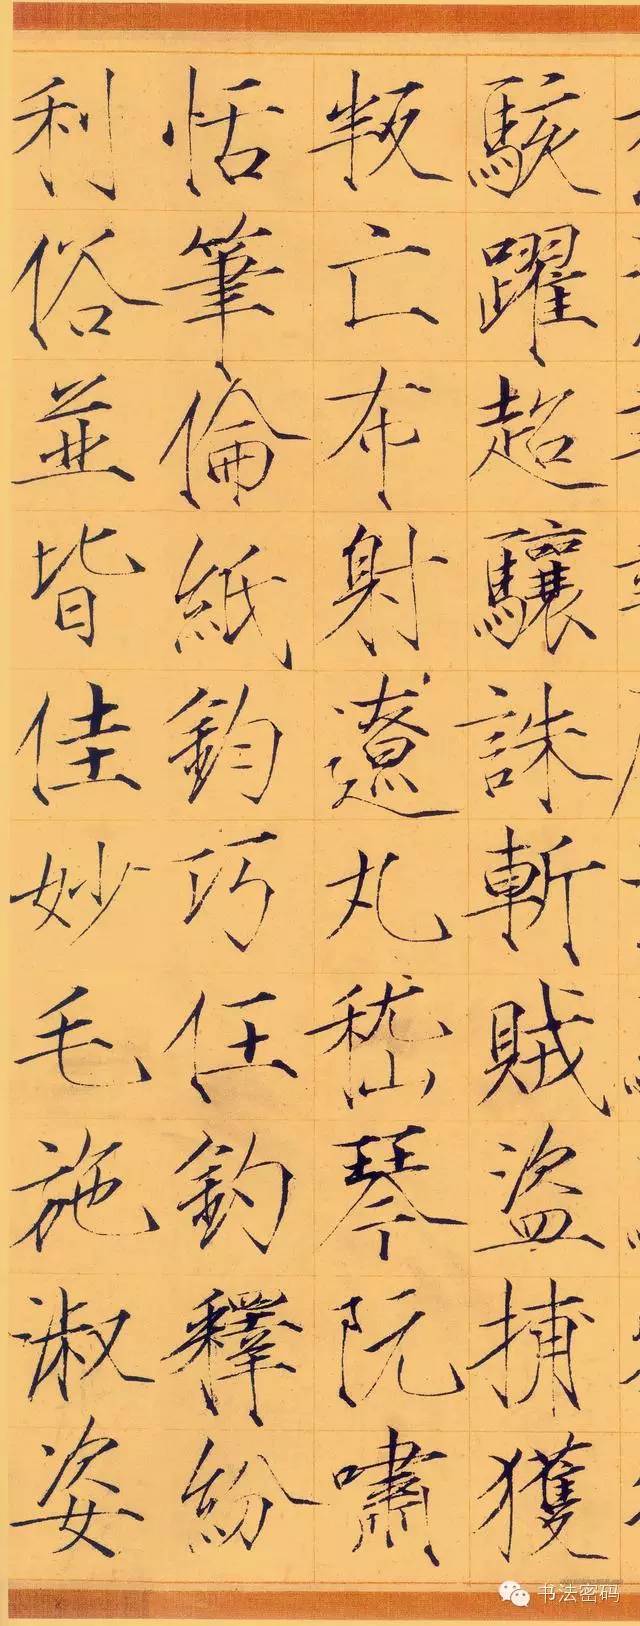 駭躍超驤誅斬賊盜捕獲
叛亡布射遼丸嵇琴阮嘯
恬筆倫紙鈞巧任釣釋紛
利俗並皆佳妙毛施淑姿
书法密码